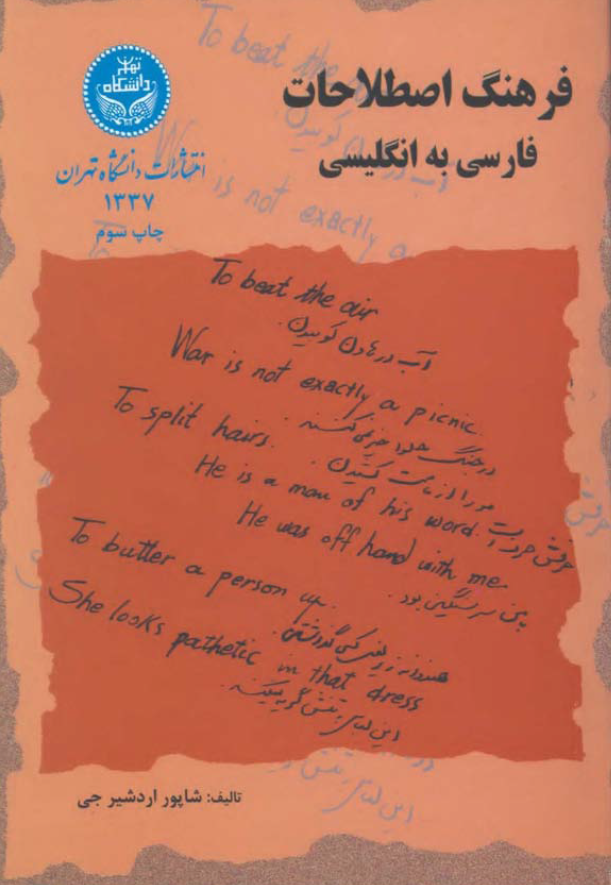 فرهنگ اصطلاحات
فارسی به انگلیسی
دانشگاه تهران
انتشارات دانشگاه تهران
۱۳۳۷
چاپ سوم
To beat the air
آب در هاون کوبیدن.
War is not exactly a picnic.
در جنگ حلوا خیر نمی‌کنند.
To split hairs.
مو را از ماست کشیدن.
He is a man of his word.
حرفش حرف است
He was off hand with me.
با من سرسنگین بود.
To butter a person up.
هندوانه زیر بغل کسی گذاشتن.
She looks pathetic in that dress
این لباس به تنش گریه میکند.
تالیف: شاپور اردشیر جی